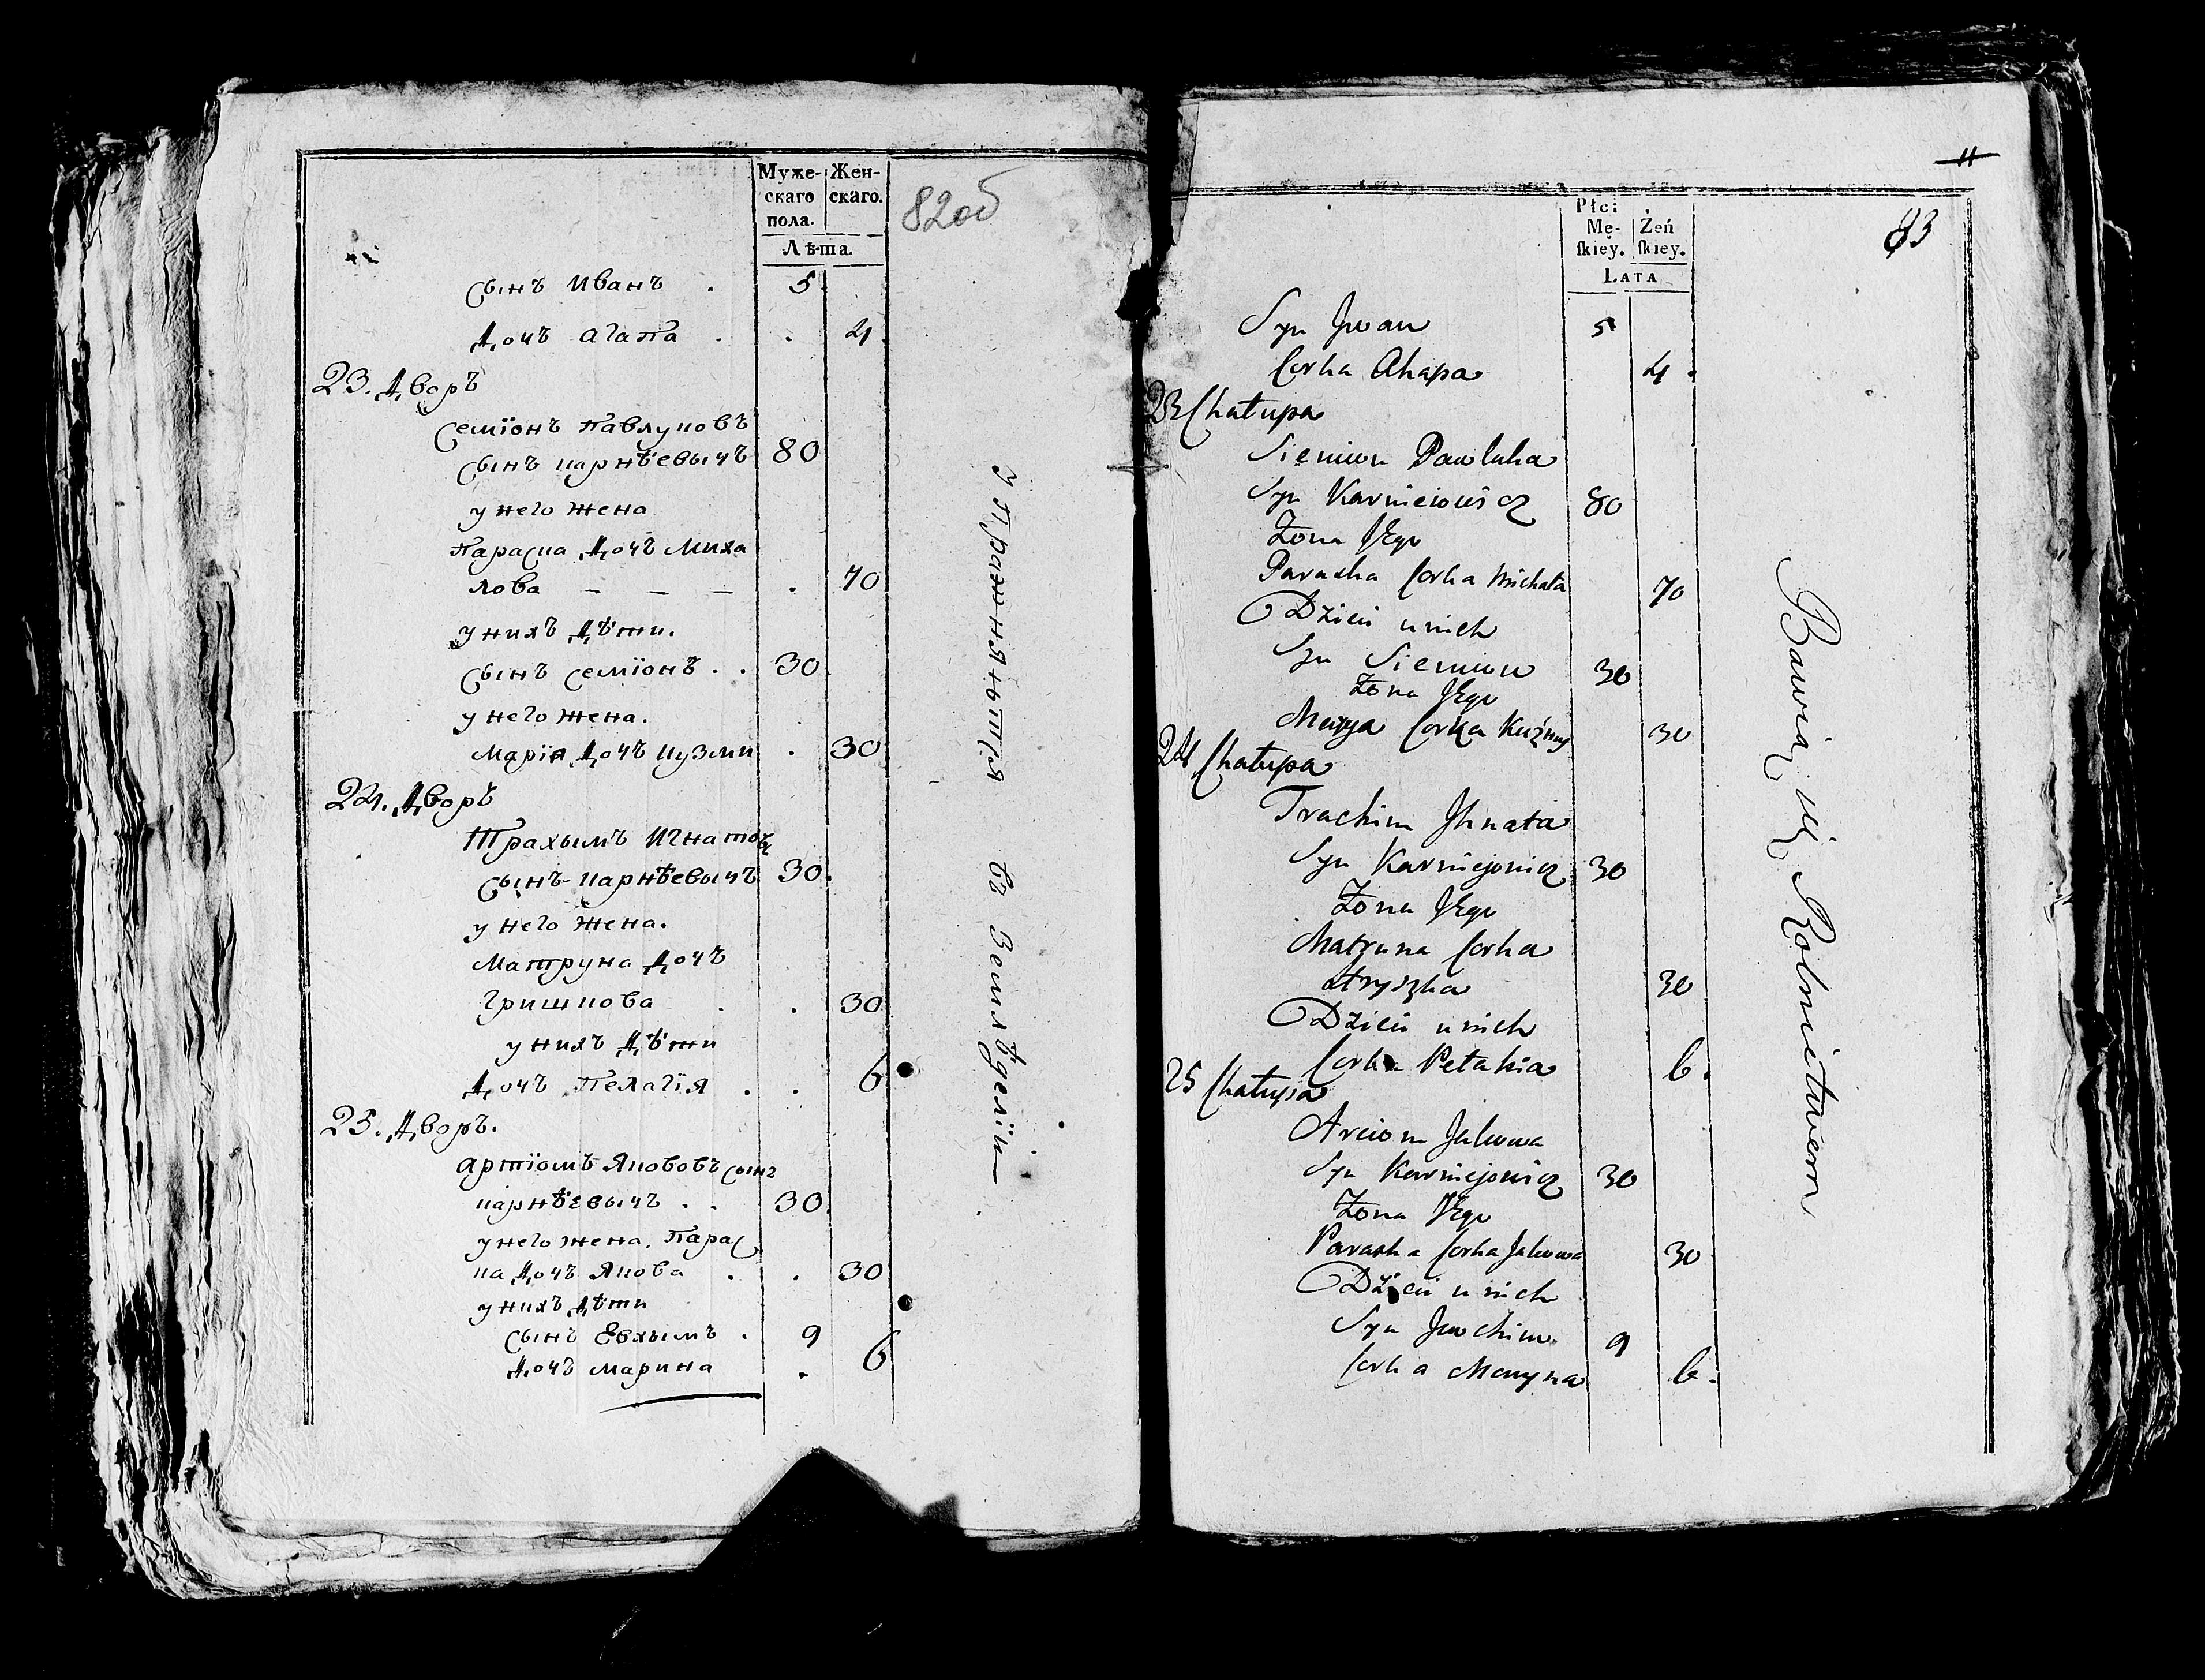 Муже-
скаго
пола.
Жен-
скаго.
Лѣта.
82об
сынъ иванъ . 5
дочъ агапа . . 4
23. дворъ
семіонъ павлуковъ
сынъ карнѣевычъ 80
у него жена
параска дочъ миха
лова — — — . 70
у нихъ дѣти.
сынъ семіонъ . . 30
у него жена.
марія дочъ кузми . 30
24. дворъ
Трахымъ игнатовъ
сынъ карнѣевычъ 30
у него жена.
матруна дочъ
гришкова . . 30
у нихъ дѣти
дочъ пелагія . . 6
25. дворъ.
артіомъ якововъ сынъ
карнѣевычъ . . 30
у него жена. парас
ка дочъ якова . . 30
у нихъ дѣти
сынъ Евхымъ . 9
дочъ марина . 6
упражняютъся въ Земледеліи
11
83
Płci
Mę-
skiey.
Żeń
skiey.
LATA
Syn Jwan 5
Corka Ahapa 4
23 Chałupa
Siemion Pawluka
Syn Karnieiewicz 80
Żona Jego
Paraska Corka Michała 70
Dzieci u nich
Syn Siemion 30
Żona Jego
Marya Corka Kuźmy 30
24 Chałupa
Trachim Jhnata
Syn Karniejewicz 30
Żona Jego
Matruna Corka
Hryszka 30
Dzieci u nich
Corka Pełahia 6.
25 Chałupa
Arciom Jakowa
Syn Karniejewicz 30
Żona Jego
Paraska Corka Jakowa 30
Dzieci u nich
Syn Jwchim 9
Corka Maryna 6.
Bawią się Rolnictwem